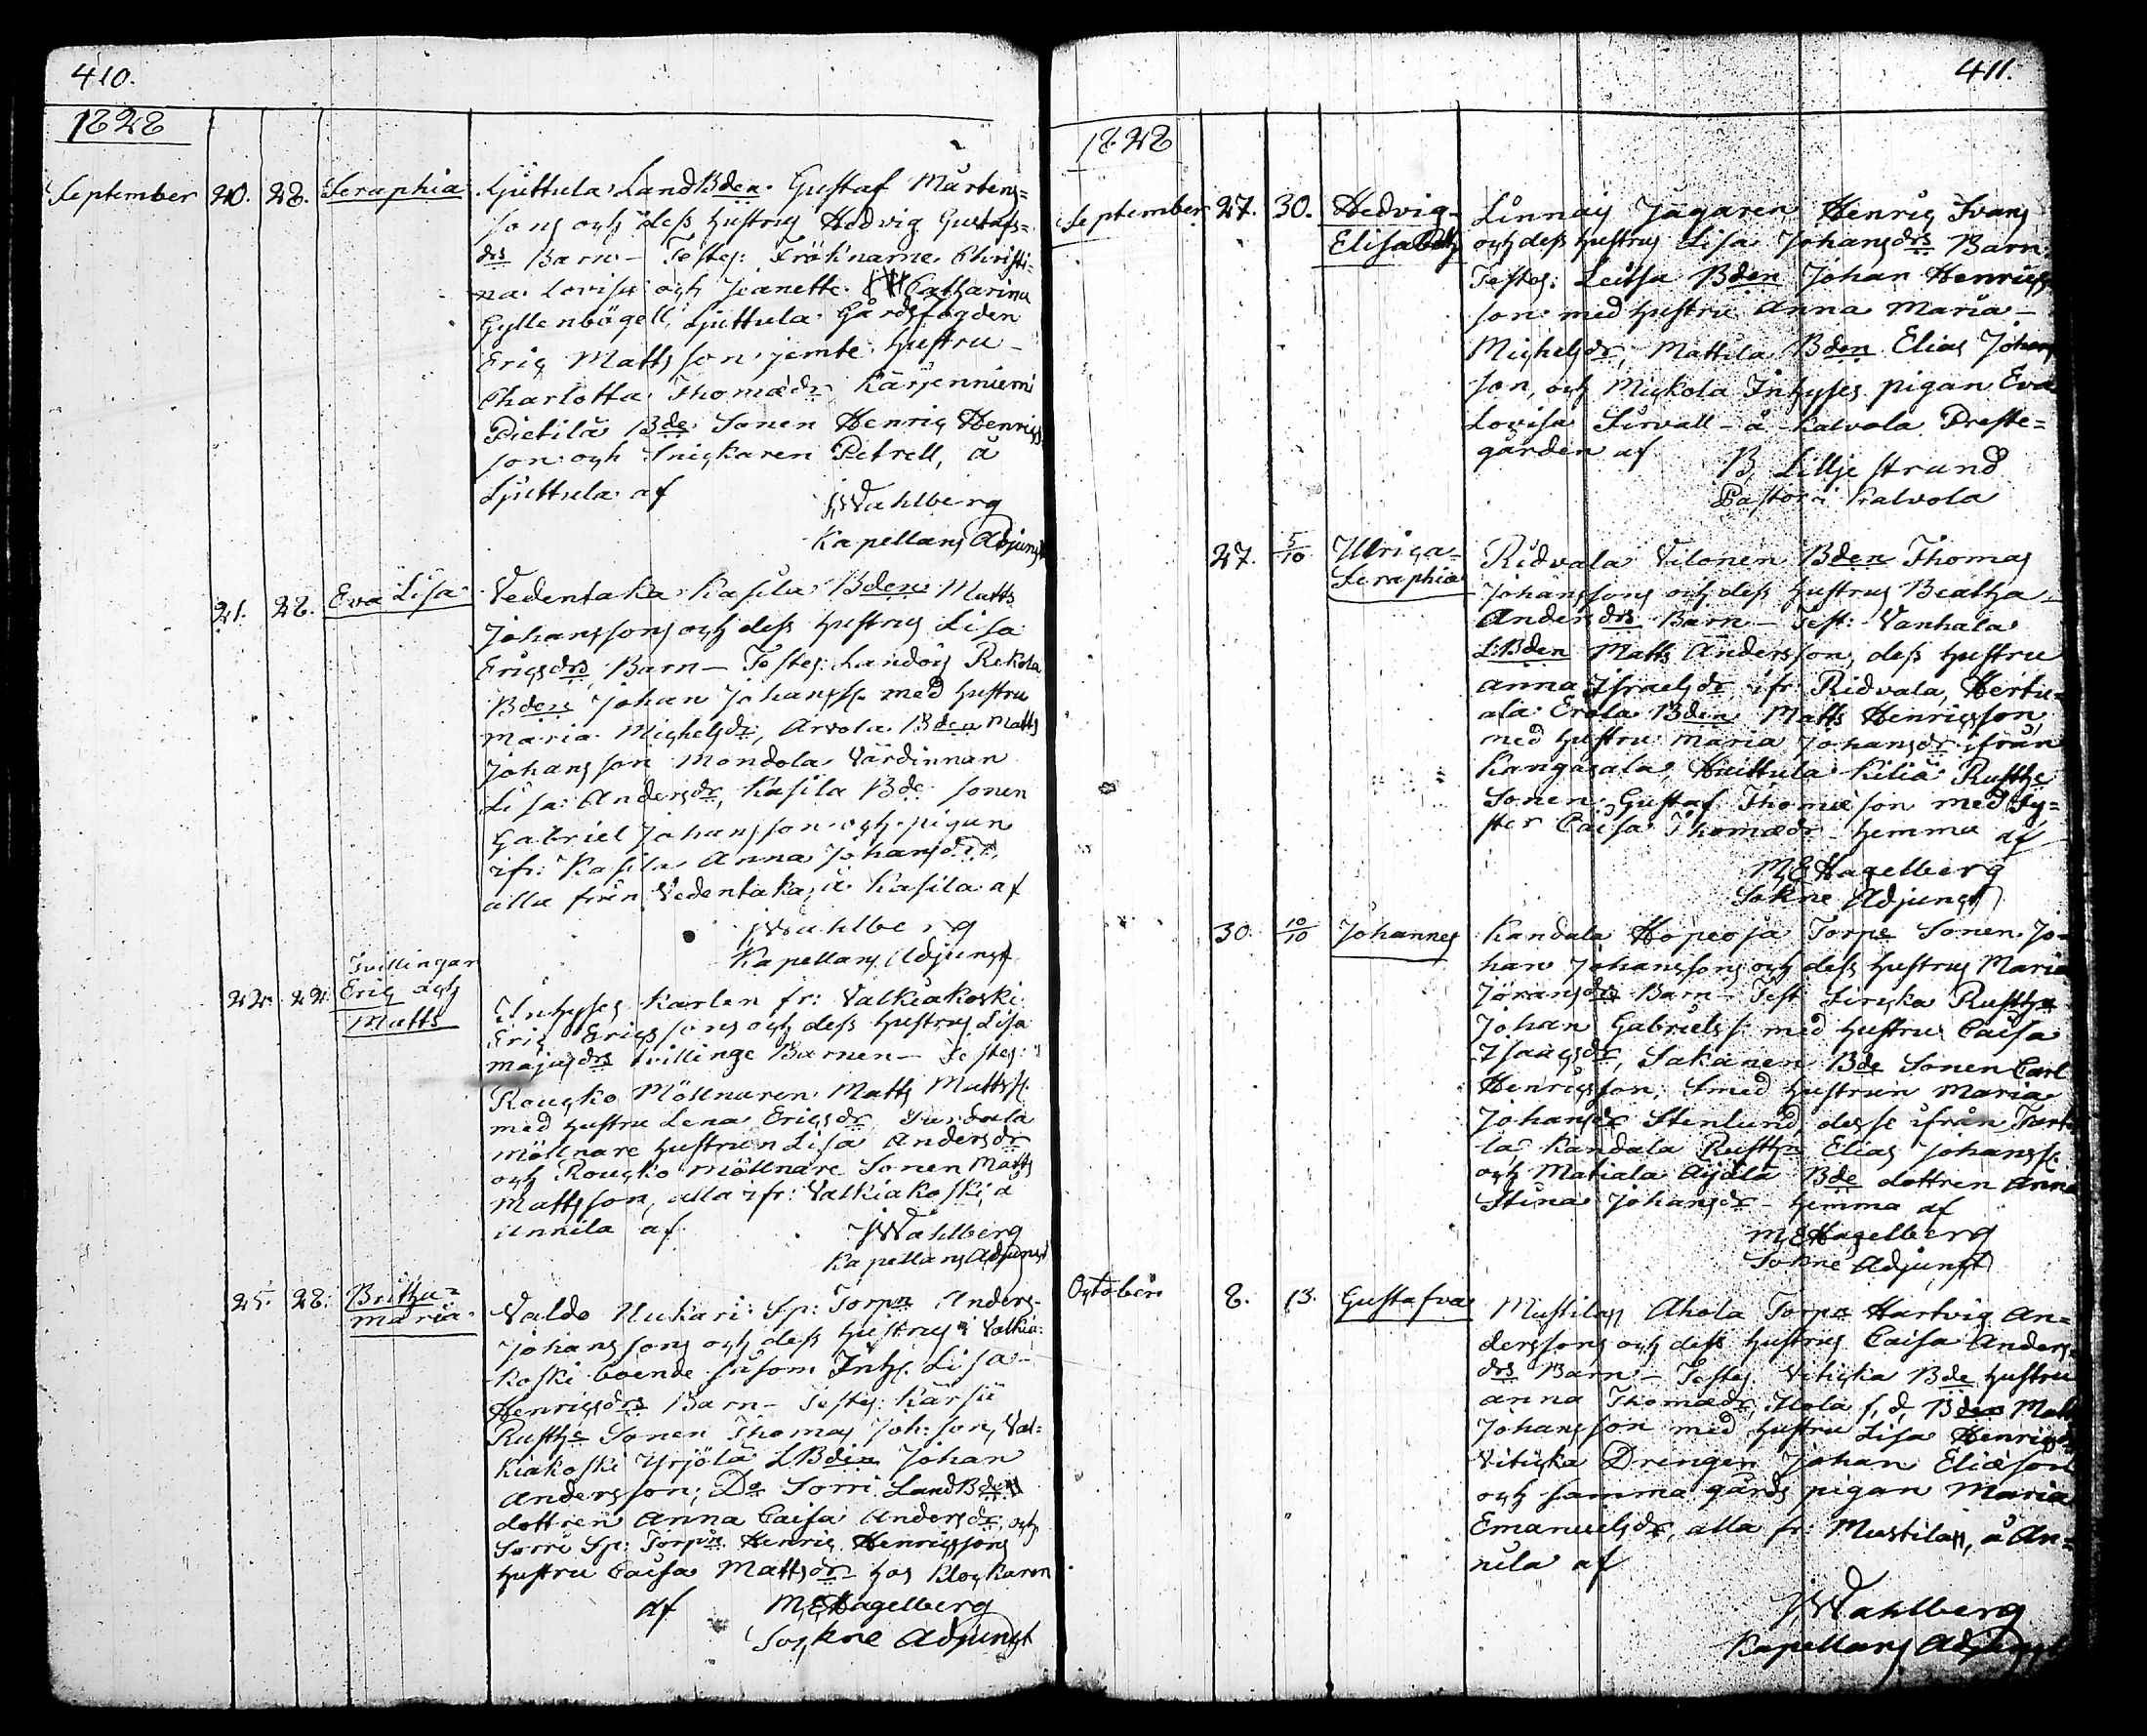 410.
1828
September 20. 28. Seraphia Ljuttula LandBden Gustaf Mårtens=
sons och dess hustrus Hedvig Gustafs=
drs Barn – Testes: Fröknarne Christi=
na Lovisa och Jeanette Catharina
Gyllenbögell, Ljuttula Gårdsfogden
Eric Matts son jemte hustru
Charlotta Thomædr, Kärjenniemi
Pietilä Bde Sonen Henric Henrics
son och Snickaren Petrell, å
Ljuttula af
JWahlberg
Kapellans Adjunct
21. 28. Eva Lisa Vedentaka Kasila Bden Matts
Johanssons och dess hustrus Lisa
Ericsdrs Barn – Testes: Landois Rekola
Bden Johan Johanss. med hustru
Maria Michelsdr, Arvola Bden Matts
Johansson Mondola Värdinnan
Lisa Andersdr, Kasila Bde sonen
Gabriel Johansson och pigan
ifr: Kasila Anna Johansdr,
alla från Vedentaka, å Kasila af
JWahlberg
Kapellans Adjunct
Tvillingar
22. 22. Eric och
Matts
Inhyses Karlen fr: Valkiakoski
Eric Ericssons och dess hustrus Lisa
Majusdrs tvillinge Barnen – Testes:
Roucko Möllnaren Matts Mattss.
med hustru Lena Ericsdr
möllnare hustrun Lisa Andersdr
och Roucko Möllnare Sonen Matts
Mattsson, alla ifr: Valkiakoski, å
Annila af
JWahlberg
Kapellans Adjunct
25. 28. Britha=
Maria
Valdo Uukari Sp: Torpn Anders
Johanssons och dess hustrus i Valkia=
koski boende såsom Inhs. Lisa
Henricsdrs Barn – Testes: Kärsü
Rusths Sonen Thomas Joh: son, Val=
kiakoski Yrjölä LBden Johan
Andersson, Do Sorri LandBdens
dottren Anna Caisa Andersdr, och
Sorri Sp: Torpn Henric Henricssons
hustru Caisa Mattsdr hos Klockaren
af MEHagelberg
Sockne Adjunct
411.
1828
September 27. 30. Hedvig
Elisabeth
Linnais Jägaren Henric Svans
och dess hustrus Lisa Johansdrs Barn.
Testes: Leitsa Bden Johan Henrics
son med hustru Anna Maria
Michelsdr, Mattila Bden Elias Johans
son, och Muckola Inhyses pigan Eva
Lovisa Sirvall – å Kalvola Preste=
gården af
B Liljestrand
Pastor i Kalvola
27. 5/10 Ulrica=
Seraphia
Ridvala Vilonen Bden Thomas
Johanssons och dess hustrus Beatha
Andersdrs Barn – Test: Vanhala
LBden Matts Andersson, dess hustru
Anna Israelsdr ifr Ridvala, Hertu=
ala Erola Bden Matts Henricsson,
med hustru Maria Johansdr ifrån
Kangasala, Huittula Kiliä Rusths
Sonen Gustaf Thomæson med Sy=
ster Caisa Thomædr – hemma af
MEHagelberg
Sokne Adjunct
30. 10/10 Johannes Kandala Hopeoja Torpe Sonen Jo=
han Johanssons och dess hustrus Maria
Göransdrs Barn – Test Sircka Rusthn
Johan Gabrielss: med hustru Caisa
Isaacsdr, Sakanen Bde Sonen Carl
Henricsson, Smed hustrun Maria
Johansdr Stenlund, desse ifrån Turt=
la Kandala Rusthn Elias Johanss.
och Matiala Äijälä Bde dottren Anna
Stina Johansdr – hemma af
MEHagelberg
Sokne Adjunct
October 8. 13. Gustafva Mustila Ahola Torpn Hartvig An=
derssons och dess hustrus Caisa Anders
drs Barn – Testes. Viticka Bde hustru
Anna Thomædr, Ilola f, d Bden Matts
Johansson med hustru Lisa Henricsdr
Viticka Drengen Johan Eliæson
och samma gårds pigan Maria
Emanuelsdr, alla fr: Mustila, å An=
nila af
JWahlberg
Kapellans Adjunct